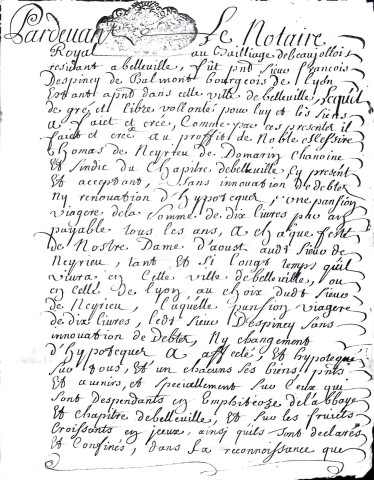 Pardevant Le Notaire
Royal au Bailliage debeaujollois
residant abelleville, fut pnt sieur francois
Despiney de Balmont bourgeois de Lyon
Estant apnt dans cette ville de belleville, Lequel
de gré, et libre vollonté, pour luy et les siens
a faict et créé, Comme par ces presentes il
faict et créé au proffit de Noble Messire
thomas de Neyrieu de Domarin chanoine
Et sindic du Chapitre debelleville Cy present
Et acceptant, sans innovation de debtes
Ny renovation d'hypotecque, une pansion
viagere dela somme de dix livres par an
payable tous les ans, a chaque feste
de Nostre Dame d'aoust audt sieur de
Neyrieu, tant et si longt temps quil
vivra en Cette ville debelleville, ou
en Celle de Lyon, au choix dudt sieur
de Neyrieu, Laquelle pansion viagere
de dix Livres, Ledt sieur Despiney sans
innovation de debtes, Ny changement
d'hypotecque a affecté, et hypotequé
sur tous, et un chacuns ses biens pnts
Et avenirs, et speciallement sur Ceux qui
sont Despendants en Emphiteoze de l'abbaye
et chapitre debelleville, et sur les fruicts
Croissants en Iceux, ainsi quils sont declarés
et Confinés, dans La reconnoissance que